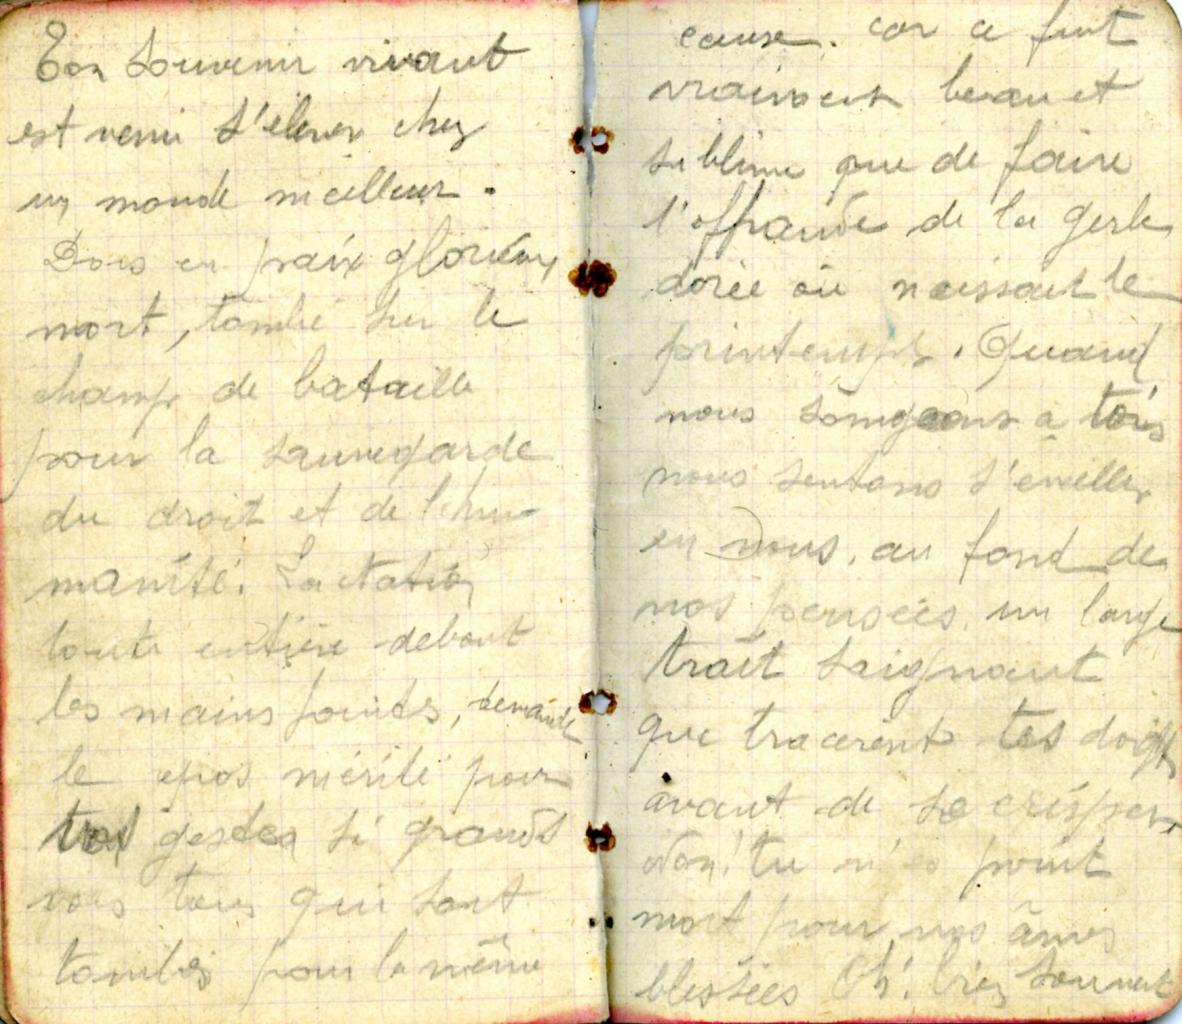 Ton souvenir vivant
est venu s'élever chez
un monde meilleur.
Dors en paix glorieux
mort, tombé sur le
champ de bataille
pour la sauvegarde
du droit et de l'hu-
manité. La Nation
toute entière debout
les mains jointes, demande
le epos mérité pour
tes gestes si grands
vous tous qui sont
tombés pour la même
cause. car ce fut
vraiment beau et
sublime que de faire
l'offrande de la gerbe
dorée où naissait le
printemps. Quand
nous songeons a toi
nous sentons s'éveiller
en nous, au fond de
nos pensées, un large
trait saignant
que tracèrent tes doigts
avant de se crisper
Non! tu n'es point
mort pour nos âmes
blessées Oh! bien souvent